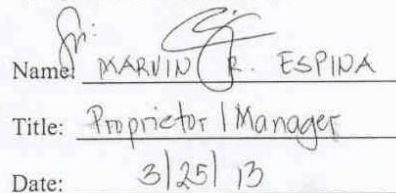 Name: MARVIN R. ESPINA
Title: Proprietor / Manager
Date: 3/25/13